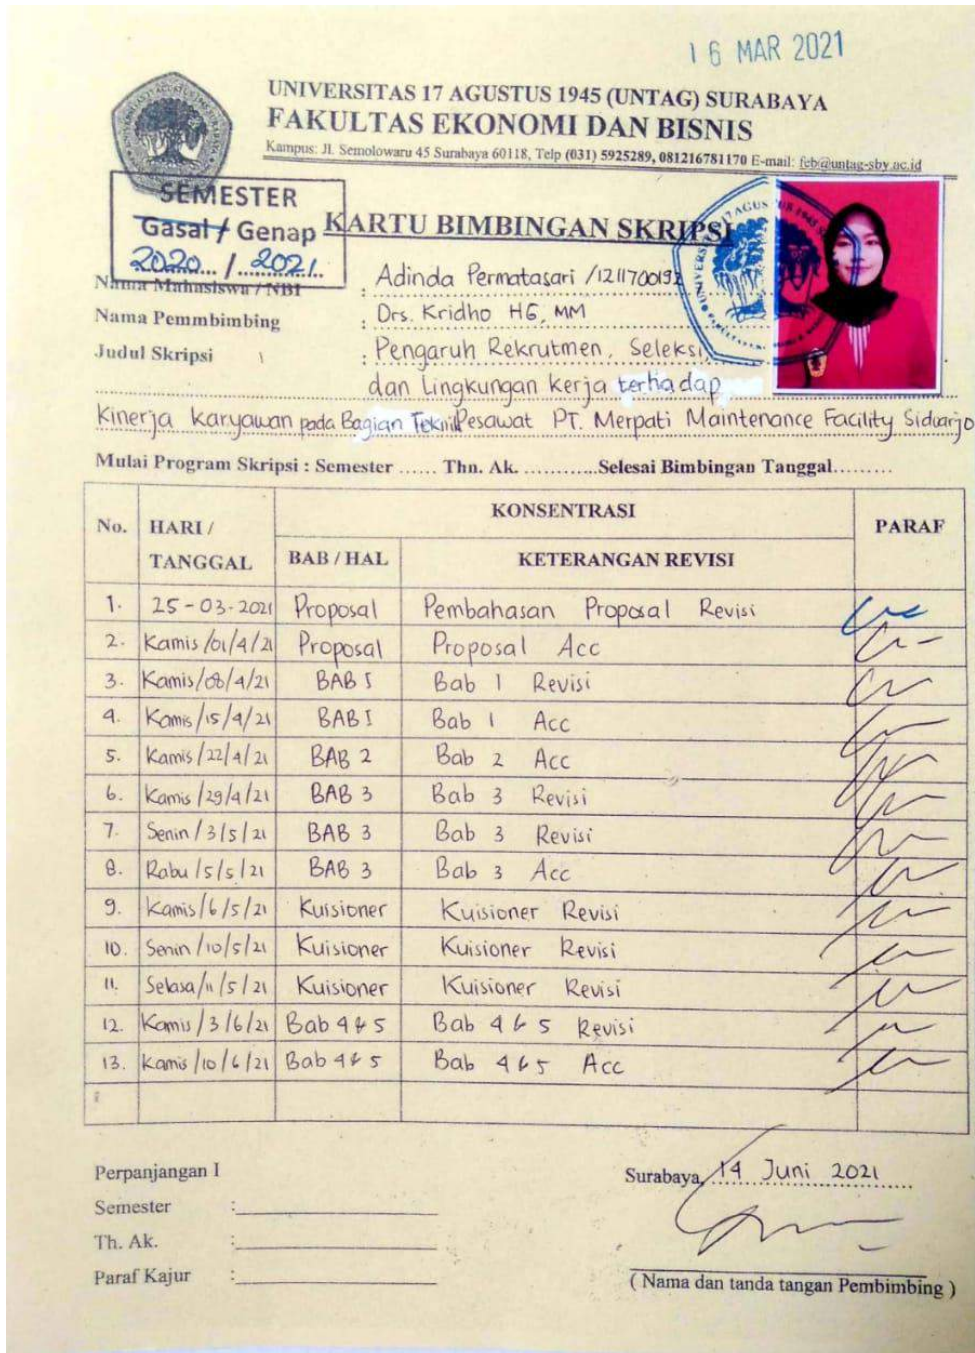 16 MAR 2021
UNIVERSITAS 17 AGUSTUS 1945 (UNTAG) SURABAYA
FAKULTAS EKONOMI DAN BISNIS
Kampus: Jl. Semolowaru 45 Surabaya 60118, Telp (031) 5925289, 081216781170 E-mail: feb@untag-sby.ac.id
SEMESTER
Gasal / Genap
2020 / 2021
KARTU BIMBINGAN SKRIPSI
Nama Mahasiswa / NBI : Adinda Permatasari / 1211700192
Nama Pemmbimbing : Drs. Kridho HG, MM
Judul Skripsi : Pengaruh Rekrutmen, Seleksi,
dan Lingkungan kerja terhadap
Kinerja Karyawan pada Bagian Teknik Pesawat PT. Merpati Maintenance Facility Sidoarjo
Mulai Program Skripsi : Semester ...... Thn. Ak. ............Selesai Bimbingan Tanggal.........
No. HARI / TANGGAL KONSENTRASI PARAF
BAB / HAL KETERANGAN REVISI
1. 25-03-2021 Proposal Pembahasan Proposal Revisi
2. Kamis/01/4/21 Proposal Proposal Acc
3. Kamis/08/4/21 BAB I Bab 1 Revisi
4. Kamis/15/4/21 BAB I Bab 1 Acc
5. Kamis/22/4/21 BAB 2 Bab 2 Acc
6. Kamis/29/4/21 BAB 3 Bab 3 Revisi
7. Senin/3/5/21 BAB 3 Bab 3 Revisi
8. Rabu/5/5/21 BAB 3 Bab 3 Acc
9. Kamis/6/5/21 Kuisioner Kuisioner Revisi
10. Senin/10/5/21 Kuisioner Kuisioner Revisi
11. Selasa/11/5/21 Kuisioner Kuisioner Revisi
12. Kamis/3/6/21 Bab 4 & 5 Bab 4 & 5 Revisi
13. Kamis/10/6/21 Bab 4 & 5 Bab 4 & 5 Acc
Perpanjangan I
Surabaya, 14 Juni 2021
Semester :
Th. Ak. :
Paraf Kajur :
( Nama dan tanda tangan Pembimbing )